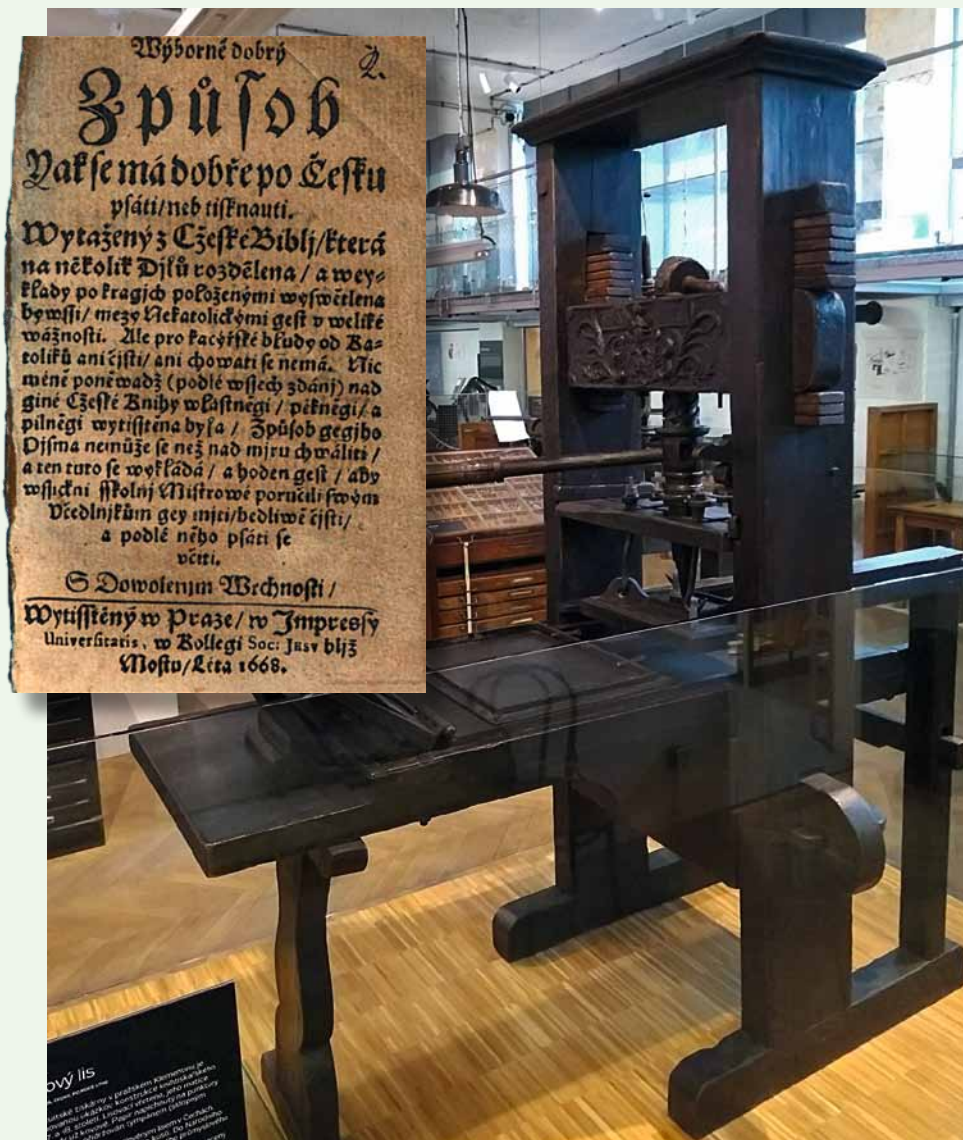 Wyborně dobrý
2.
Způſob
Yak ſe má dobře po Čeſku
pſáti/ neb tiſknauti.
Wytažený z Cžeſké Biblj/ která
na několik Djlů rozdělena/ a wey-
klady po kragjch položenými wyſwětlena
bywſſi/ mezy Nekatolickými geſt v weliké
wážnoſti. Ale pro kacýřſké bludy od Ka-
tolíků ani čjſti/ ani chowati ſe nemá. Nic
méně poněwadž (podlé wſſech zdánj) nad
giné Cžeſké Knihy wlaſtněgi/ pěkněgi/ a
pilněgi wytiſſtěna byſa/ Způſob gegjho
Pjſma nemůže ſe než nad mjru chwáliti/
a ten tuto ſe wykládá/ a hoden geſt/ aby
wſſickni ſſkolnj Miſtrowé poručili ſwým
Včedlnjkům gey mjti/ bedliwě čjſti/
a podlé něho pſáti ſe
včiti.
S Dowolenjm Wrchnoſti/
Wytiſſtěný w Praze/ w Impreſſy
Univerſitatis, w Kollegi Soc: Jesv bljž
Moſtu/ Léta 1668.
ový lis